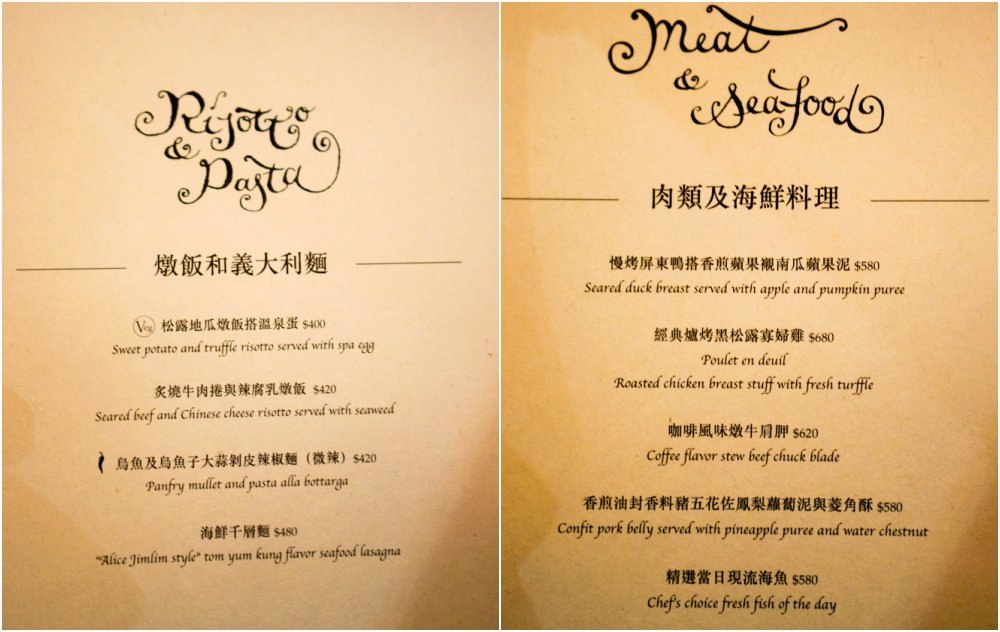 Risotto
& Pasta
燉飯和義大利麵
Veg 松露地瓜燉飯搭溫泉蛋 $400
Sweet potato and truffle risotto served with spa egg
炙燒牛肉捲與辣腐乳燉飯 $420
Seared beef and Chinese cheese risotto served with seaweed
烏魚及烏魚子大蒜剝皮辣椒麵（微辣）$420
Panfry mullet and pasta alla bottarga
海鮮千層麵 $480
"Alice Jimlim style" tom yum kung flavor seafood lasagna
Meat
& Seafood
肉類及海鮮料理
慢烤屏東鴨搭香煎蘋果襯南瓜蘋果泥 $580
Seared duck breast served with apple and pumpkin puree
經典爐烤黑松露寡婦雞 $680
Poulet en deuil
Roasted chicken breast stuff with fresh turffle
咖啡風味燉牛肩胛 $620
Coffee flavor stew beef chuck blade
香煎油封香料豬五花佐鳳梨蘿蔔泥與菱角酥 $580
Confit pork belly served with pineapple puree and water chestnut
精選當日現流海魚 $580
Chef's choice fresh fish of the day